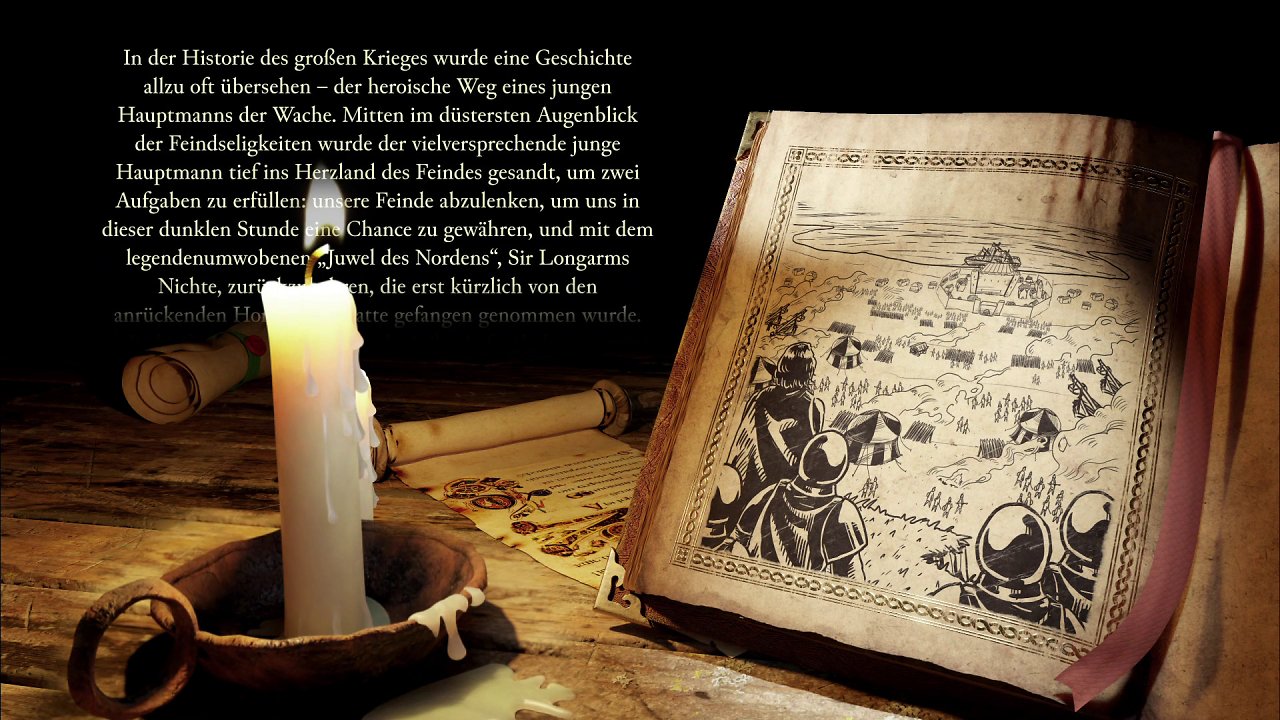 In der Historie des großen Krieges wurde eine Geschichte
allzu oft übersehen – der heroische Weg eines jungen
Hauptmanns der Wache. Mitten im düstersten Augenblick
der Feindseligkeiten wurde der vielversprechende junge
Hauptmann tief ins Herzland des Feindes gesandt, um zwei
Aufgaben zu erfüllen: unsere Feinde abzulenken, um uns in
dieser dunklen Stunde eine Chance zu gewähren, und mit dem
legendenumwobenen „Juwel des Nordens“, Sir Longarms
Nichte, die erst kürzlich von den
anrückenden gefangen genommen wurde.